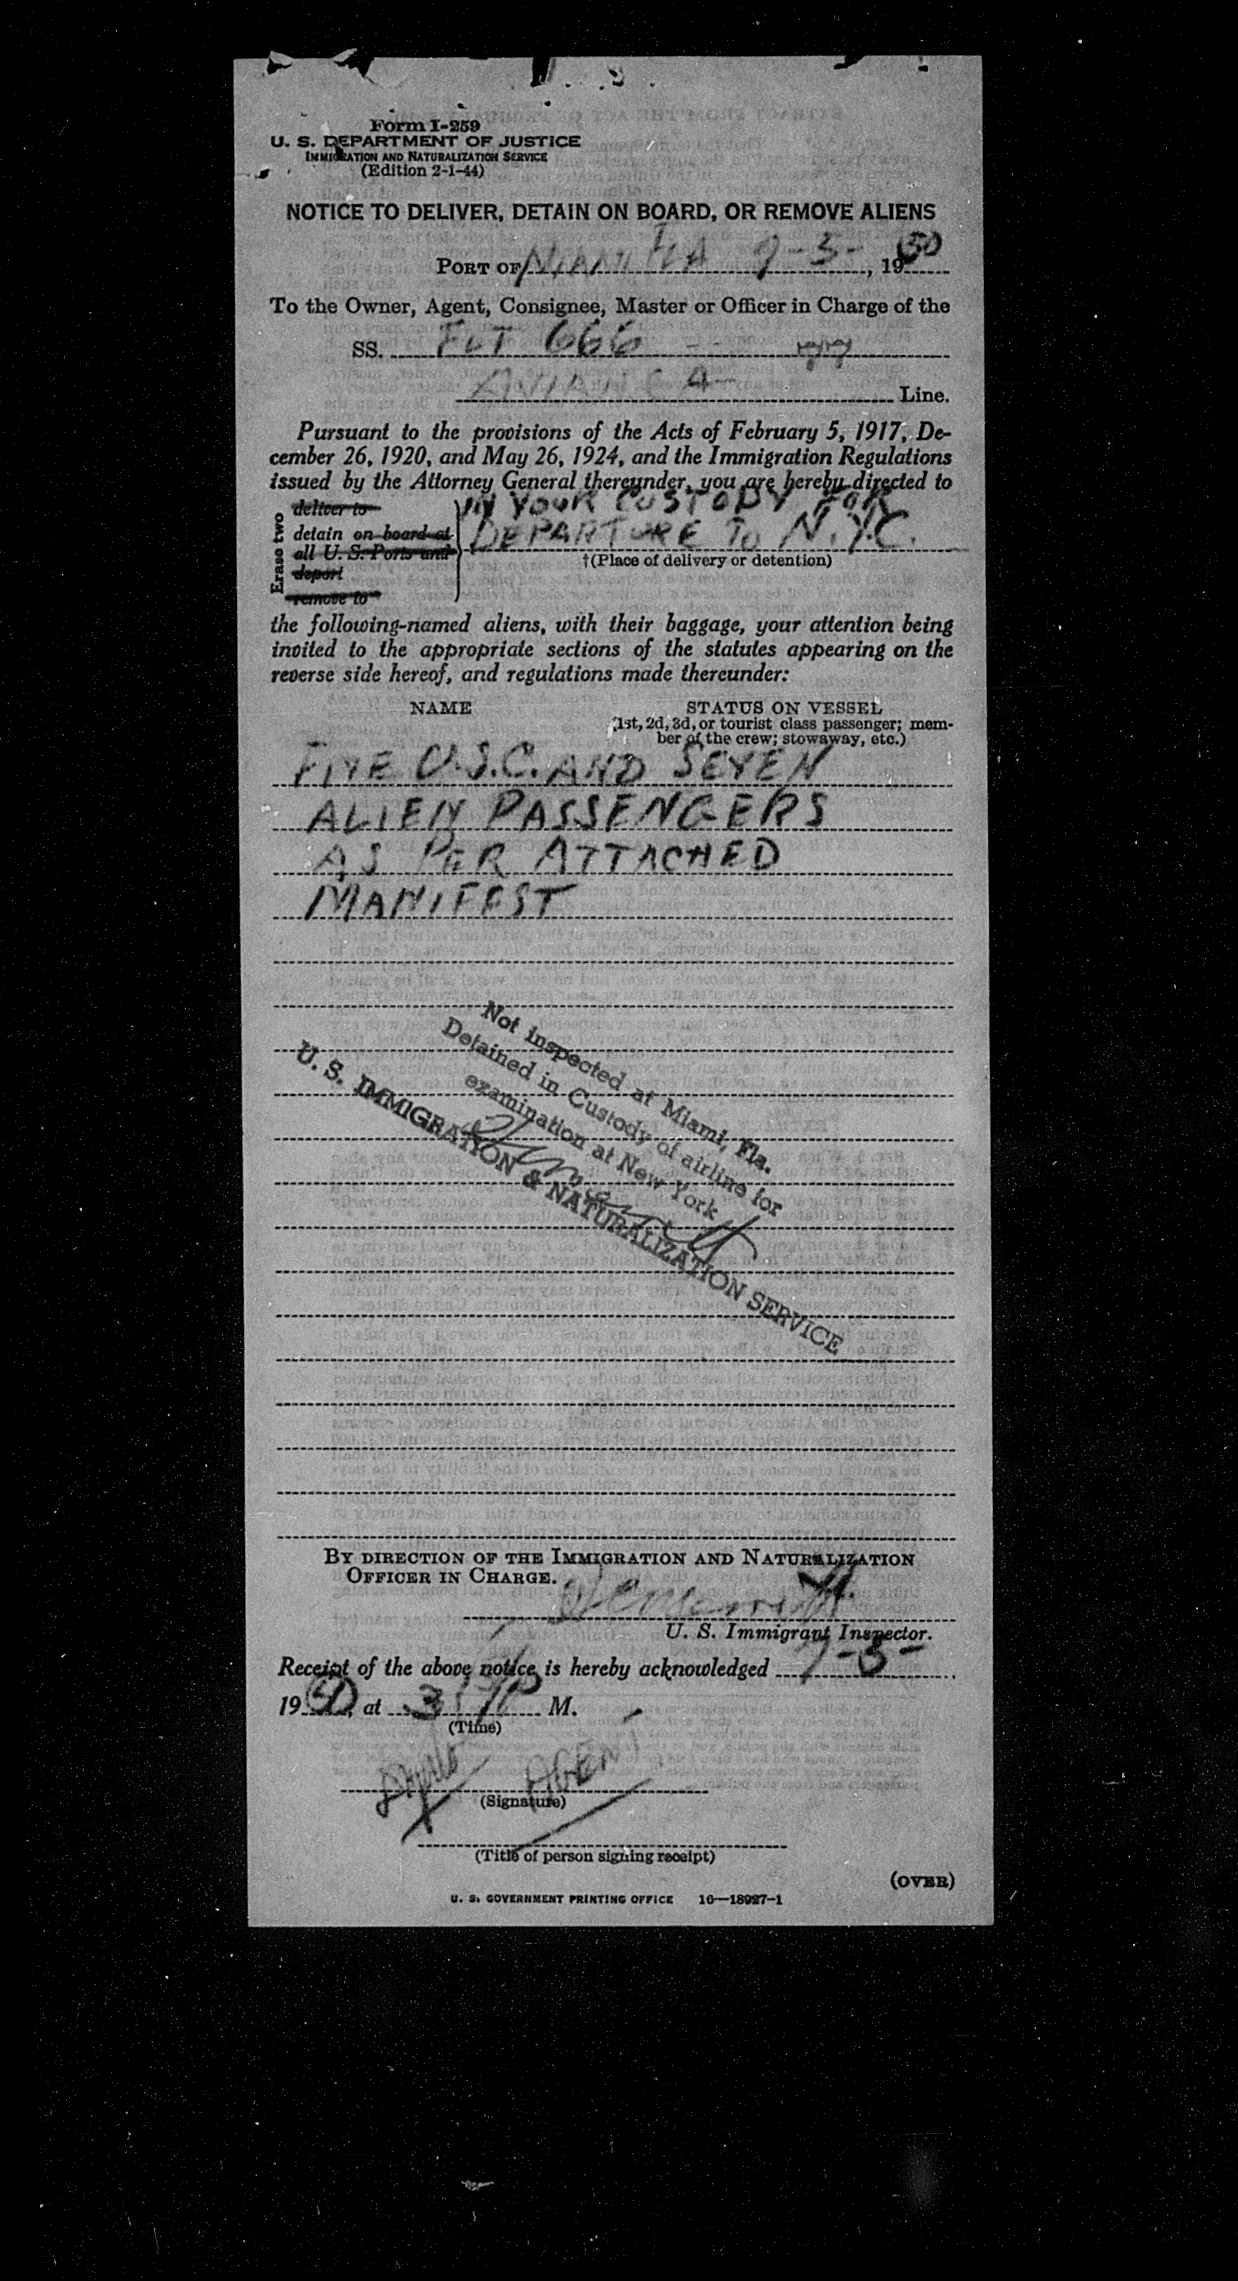 Form I-259
U. S. DEPARTMENT OF JUSTICE
IMMIGRATION AND NATURALIZATION SERVICE
(Edition 2-1-44)
NOTICE TO DELIVER, DETAIN ON BOARD, OR REMOVE ALIENS
PORT OF MIAMI FLA 9-3-, 1950
To the Owner, Agent, Consignee, Master or Officer in Charge of the
SS. FLT 666
AVIANCA Line.
Pursuant to the provisions of the Acts of February 5, 1917, De-
cember 26, 1920, and May 26, 1924, and the Immigration Regulations
issued by the Attorney General thereunder, you are hereby directed to
Erase two
deliver to
detain on board at
all U. S. Ports and
deport
remove to
IN YOUR CUSTODY FOR
DEPARTURE TO N.Y.C.
†(Place of delivery or detention)
the following-named aliens, with their baggage, your attention being
invited to the appropriate sections of the statutes appearing on the
reverse side hereof, and regulations made thereunder:
NAME STATUS ON VESSEL
(1st, 2d, 3d, or tourist class passenger; mem-
ber of the crew; stowaway, etc.)
FIVE U.S.C. AND SEVEN
ALIEN PASSENGERS
AS PER ATTACHED
MANIFEST
Not inspected at Miami, Fla.
Detained in Custody of airline for
examination at New York
U. S. IMMIGRATION & NATURALIZATION SERVICE
BY DIRECTION OF THE IMMIGRATION AND NATURALIZATION
OFFICER IN CHARGE.
U. S. Immigrant Inspector.
Receipt of the above notice is hereby acknowledged
1950, at M.
(Time)
AGENT
(Signature)
(Title of person signing receipt)
(OVER)
U. S. GOVERNMENT PRINTING OFFICE 16—18927-1